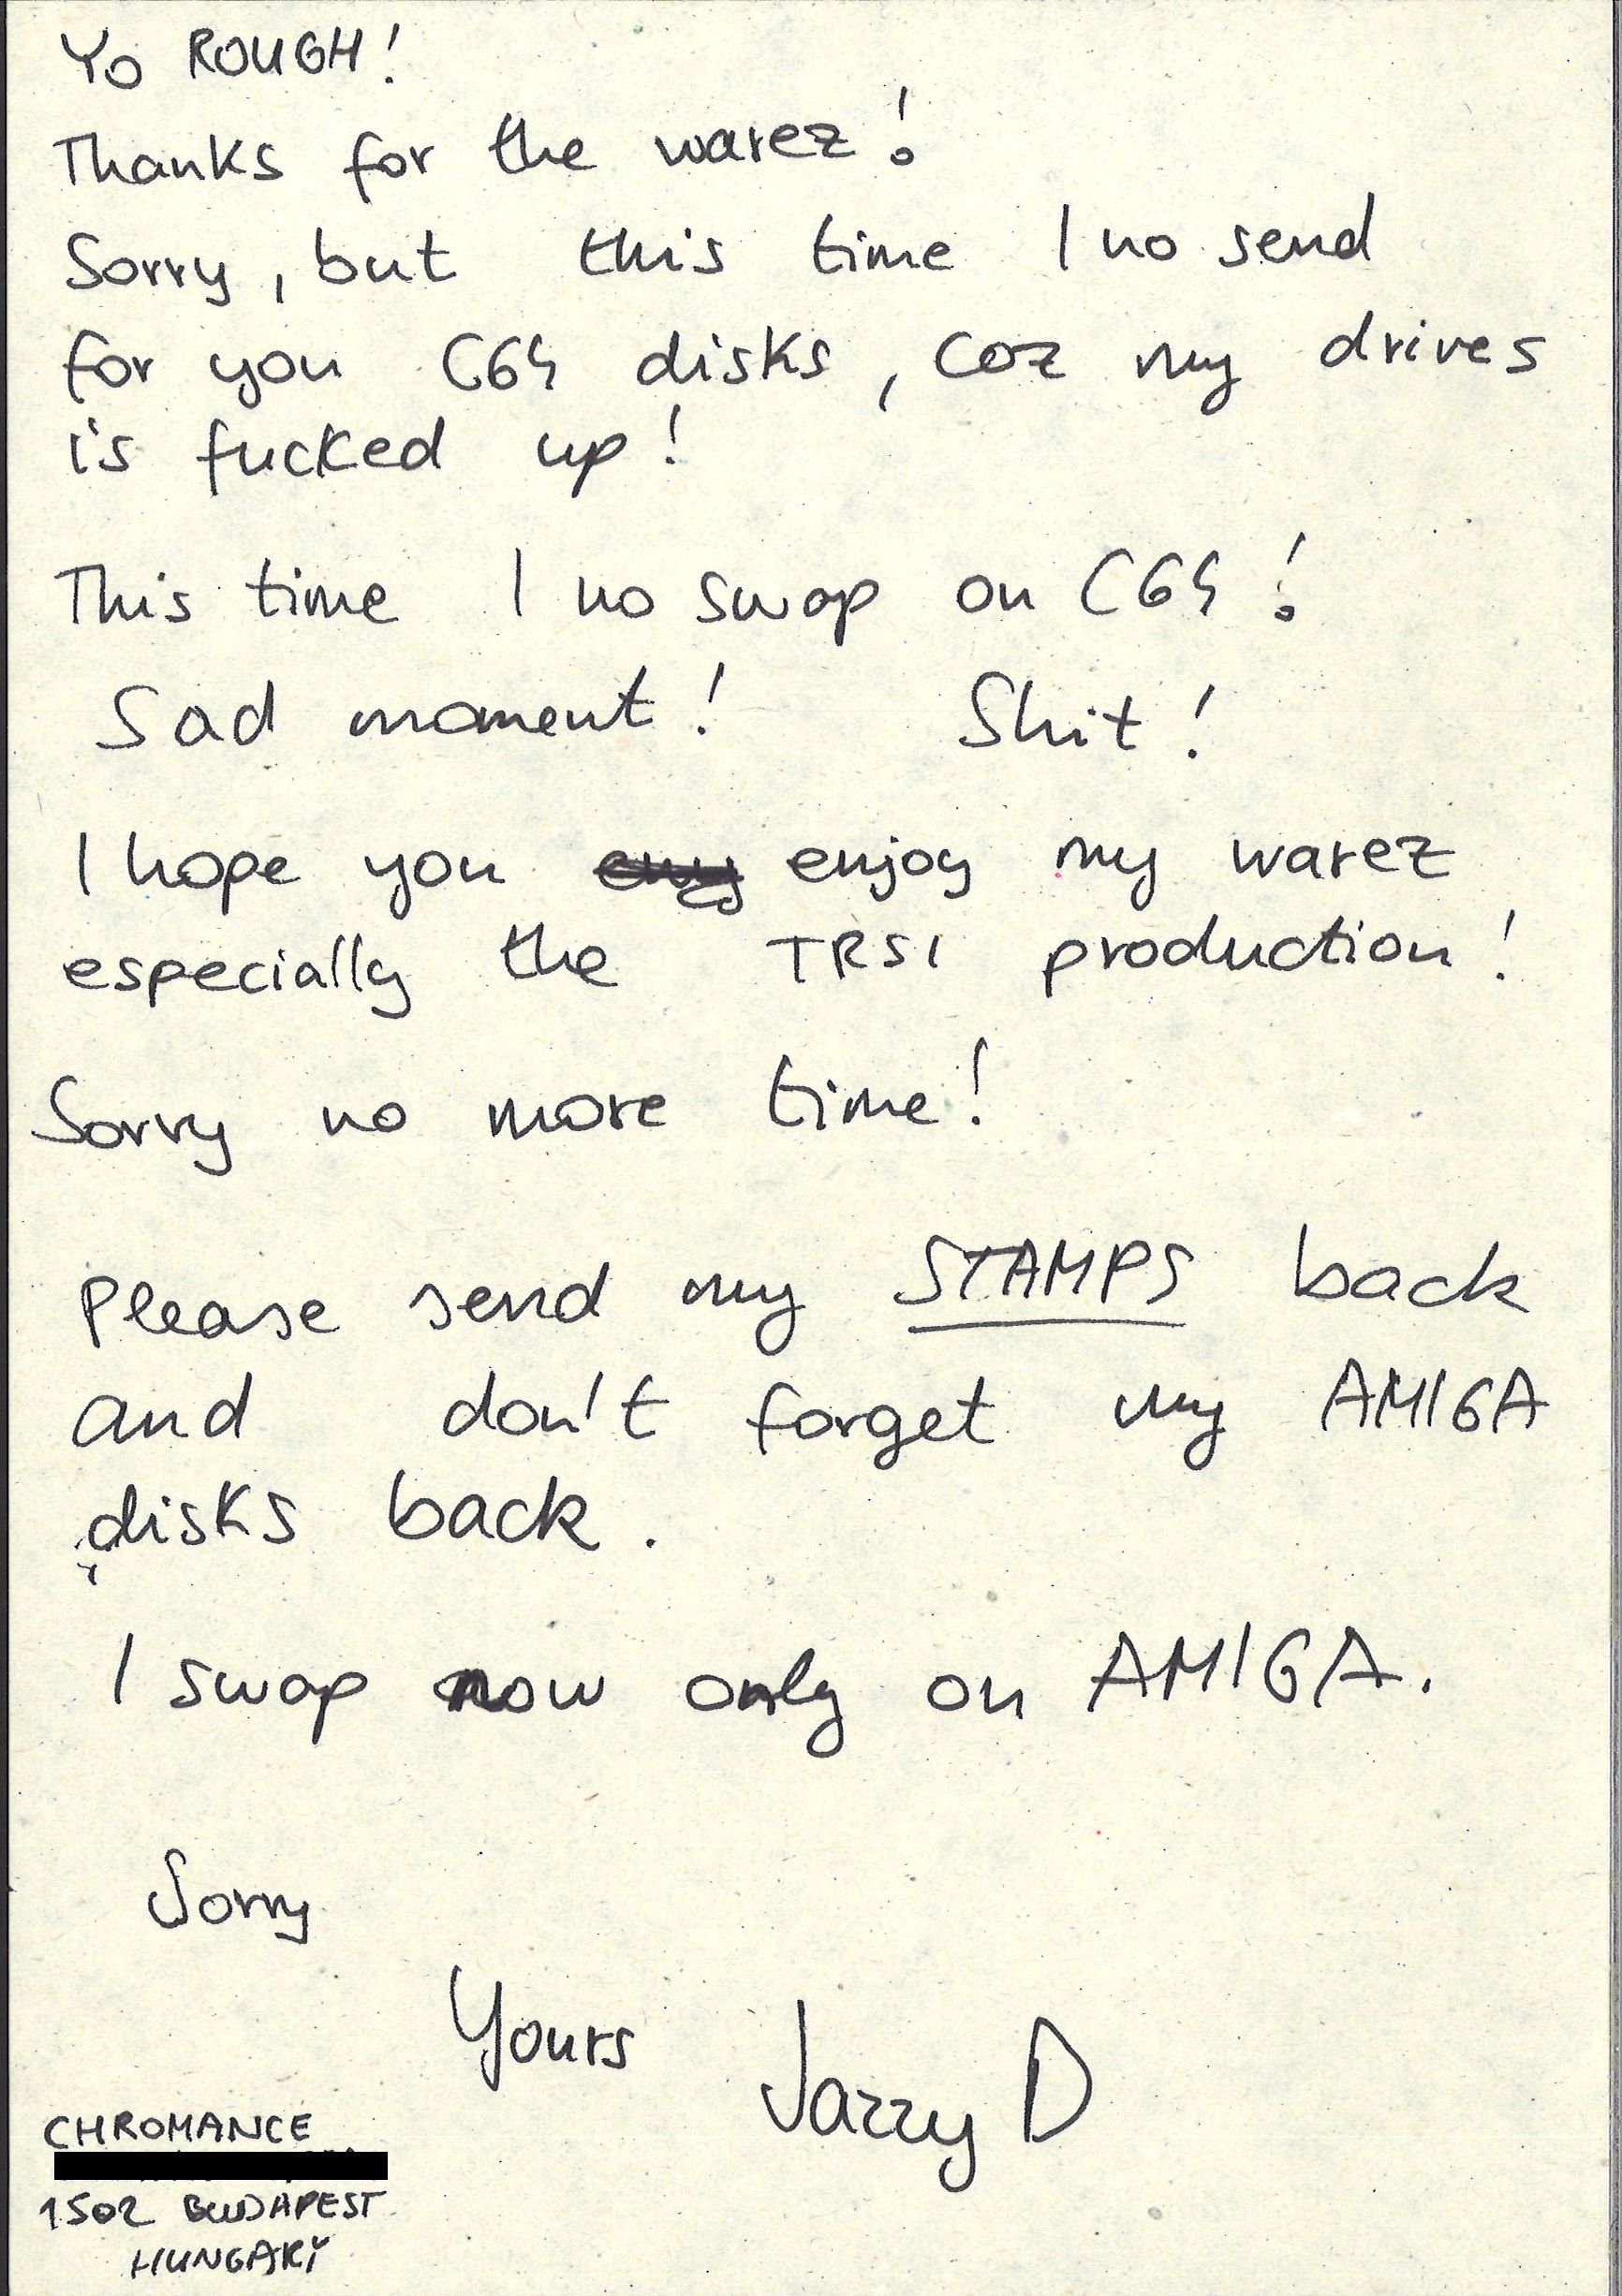 Yo ROUGH!
Thanks for the warez!
Sorry, but this time I no send
for you C64 disks, coz my drives
is fucked up!
This time I no swap on C64!
Sad moment! Shit!
I hope you enjoy my warez
especially the TRSI production!
Sorry no more time!
Please send my STAMPS back
and don't forget my AMIGA
disks back.
I swap now only on AMIGA.
Sorry
Yours Jazzy D
CHROMANCE
1502 BUDAPEST
HUNGARY